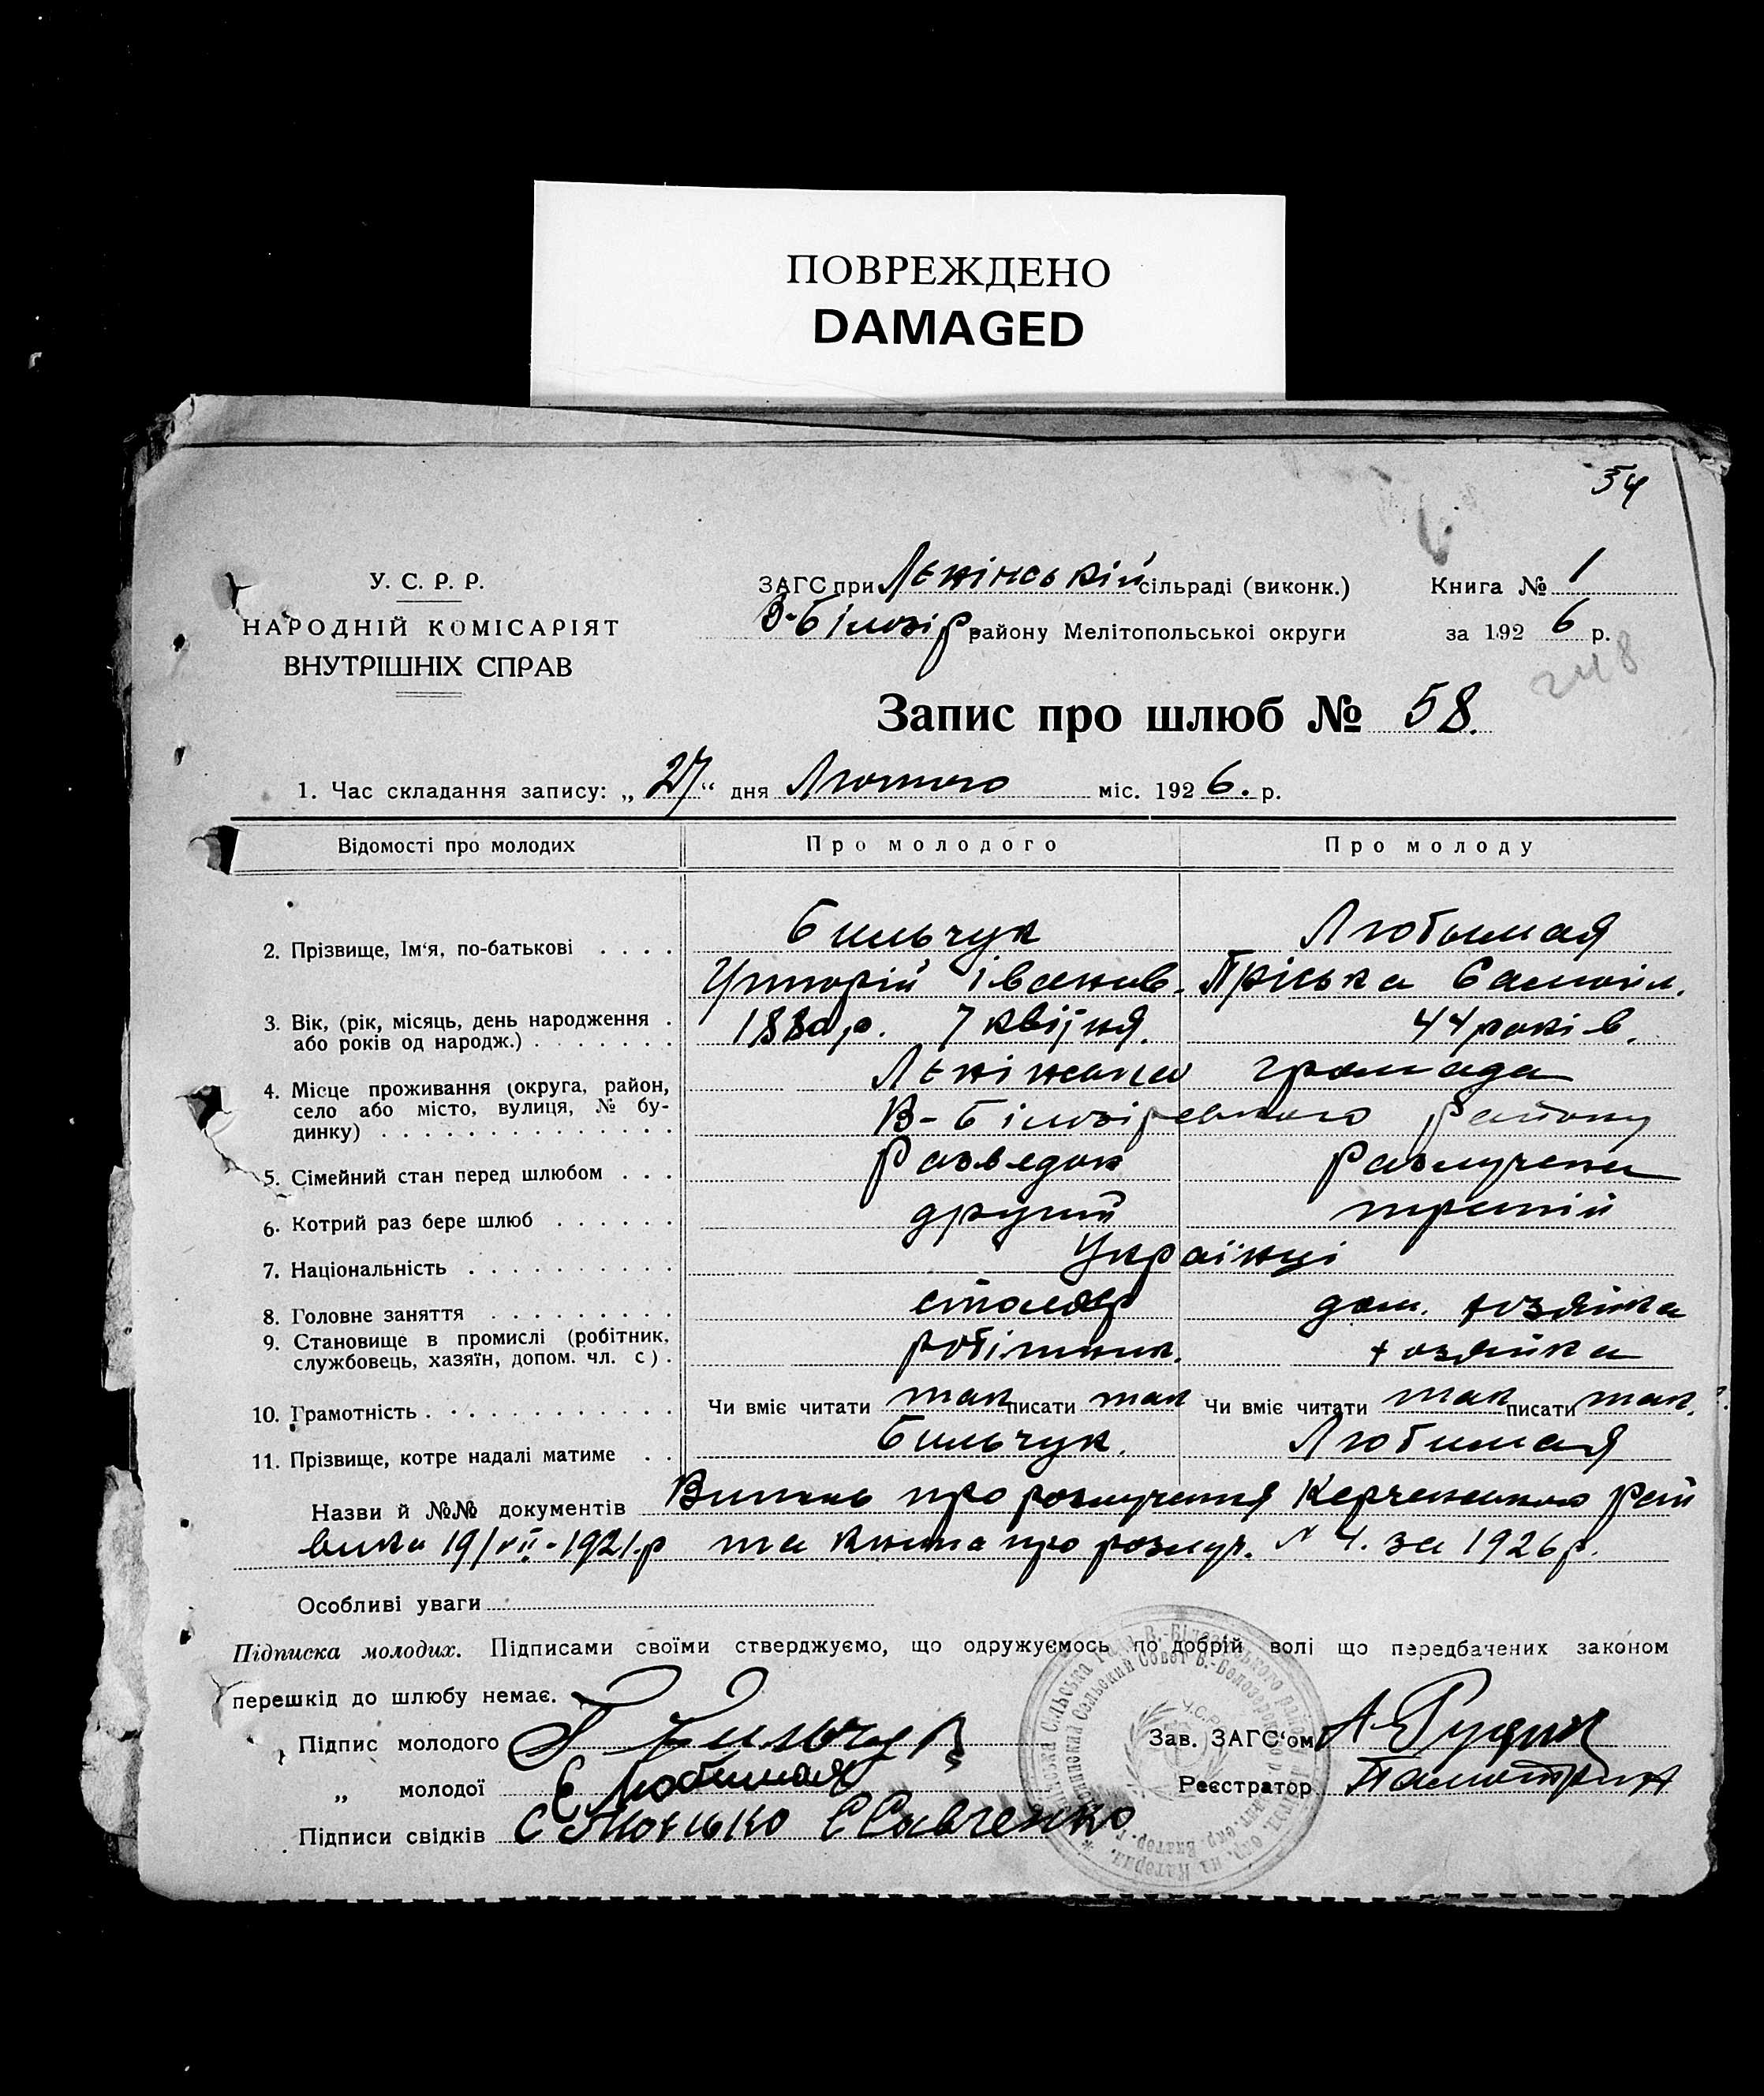 ПОВРЕЖДЕНО
DAMAGED
54
У. С. Р. Р.
НАРОДНІЙ КОМІСАРІЯТ
ВНУТРІШНІХ СПРАВ
ЗАГС при Лєнінській сільраді (виконк.)
В-Білозір району Мелітопольської округи
Книга № 1
за 192 6 р.
248
Запис про шлюб № 58.
1. Час складання запису: „ 27 “ дня Лютого міс. 192 6. р.
Відомості про молодих Про молодого Про молоду
2. Прізвище, Ім‘я, по-батькові . . . . Бильчук Любимая
Григорій Іванов. Пріська Самойл.
3. Вік, (рік, місяць, день народження . 188 р. 7 квітня. 44 років.
або років од народж.) . . . . . . .
4. Місце проживання (округа, район, Лєнінська громада
село або місто, вулиця, № бу-
динку) . . . . . . . . . . . . . . В-Білозірського району
5. Сімейний стан перед шлюбом . . . Разведок Разлучена
6. Котрий раз бере шлюб . . . . . . другий третій
7. Національність . . . . . . . . . . Українці
8. Головне заняття . . . . . . . . . столяр дом. хозяйка
9. Становище в промислі (робітник,
службовець, хазяїн, допом. чл. с ) . робітник. хозяйка
10. Грамотність . . . . . . . . . . . Чи вміє читати так писати так Чи вміє читати так писати так.
11. Прізвище, котре надалі матиме . . Бильчук. Любимая
Назви й №№ документів про розлучення Керченського рай
вика 19/VII-1921.р та книга про розлуч. N 4. за 1926 р.
Особливі уваги
Підписка молодих. Підписами своїми стверджуємо, що одружуємось по добрій волі що передбачених законом
перешкід до шлюбу немає.
Підпис молодого Г Бильчук
Зав. ЗАГС‘ом А.
„ молодої Є Любимая
Реєстратор
Підписи свідків С Савченко